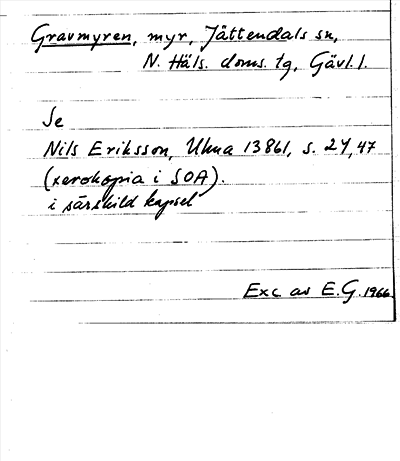 Gravmyren, myr, Jättendals sn,
N. Häls. doms. tg, Gävl. l.
Se
Nils Eriksson, Uma 13861, s. 24, 47
(xerokopia i SOA).
i särskild kapsel
Exc av E.G. 1966